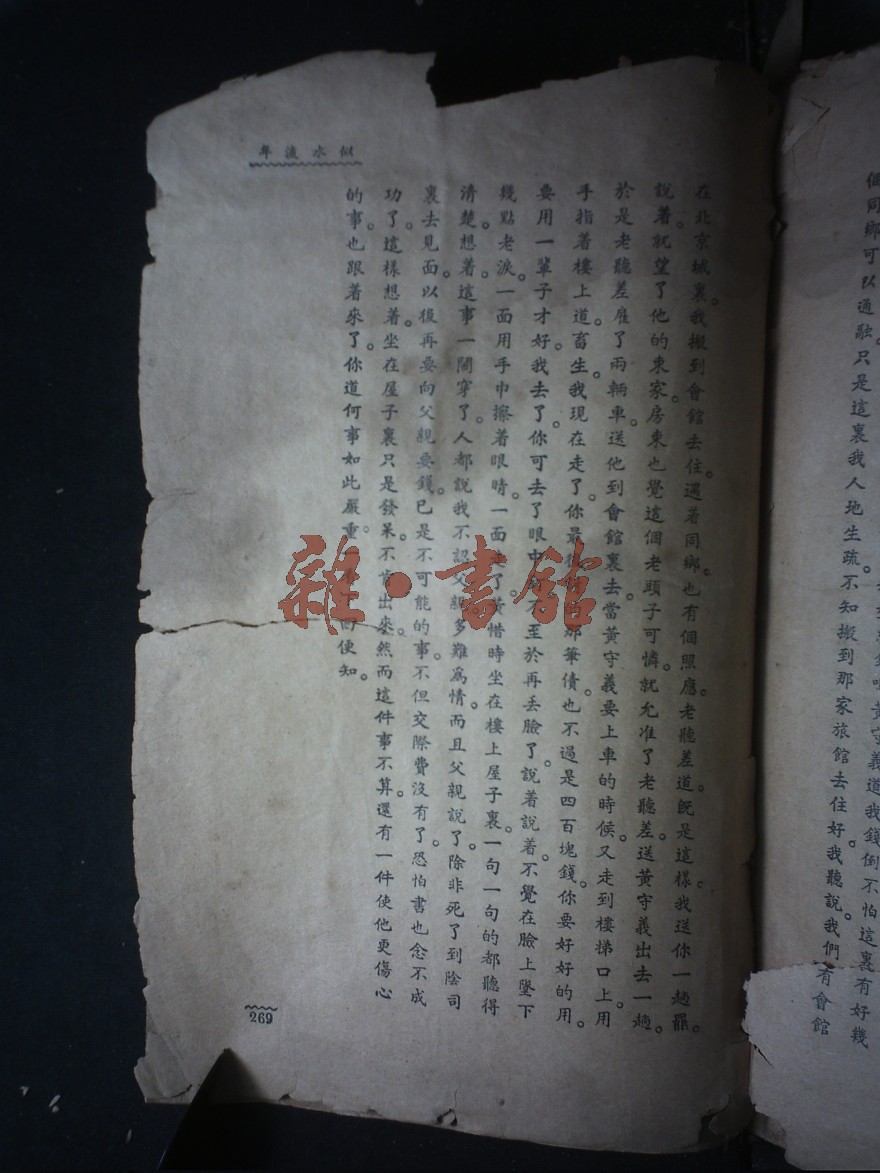 個同鄉可以通融。只是這裏我人地生疏。不知搬到那家旅館去住好。我聽說。我們有會館
黃守義道。我錢倒不怕。這裏有好幾
似水流年
在北京城裏。我搬到會館去住。遇着同鄉。也有個照應。老聽差道。旣是這樣。我送你一趟罷。
說着。就望了他的東家。房東也覺這個老頭子可憐。就允准了老聽差。送黃守義出去一趟。
於是老聽差雇了兩輛車。送他到會館裏去。當黃守義要上車的時候。又走到樓梯口上。用
手指着樓上道。畜生。我現在走了。你最後 那筆債。也不過是四百塊錢。你要好好的用。
要用一輩子才好。我去了。你可去了眼中 不至於再丢臉了。說着說着。不覺在臉上墜下
幾點老淚。一面用手巾擦着眼睛。一面走了。黃惜時坐在樓上屋子裏。一句一句的都聽得
清楚。想着這事一鬧穿了。人都說我不認父親。多難爲情。而且父親說了。除非死了到陰司
裏去見面。以後再要向父親要錢。已是不可能的事。不但交際費沒有了。恐怕書也念不成
功了。這樣想着。坐在屋子裏只是發呆。不肯出來。然而這件事不算。還有一件使他更傷心
的事也跟着來了。你道何事如此嚴重。 回便知。
269
雜·書館